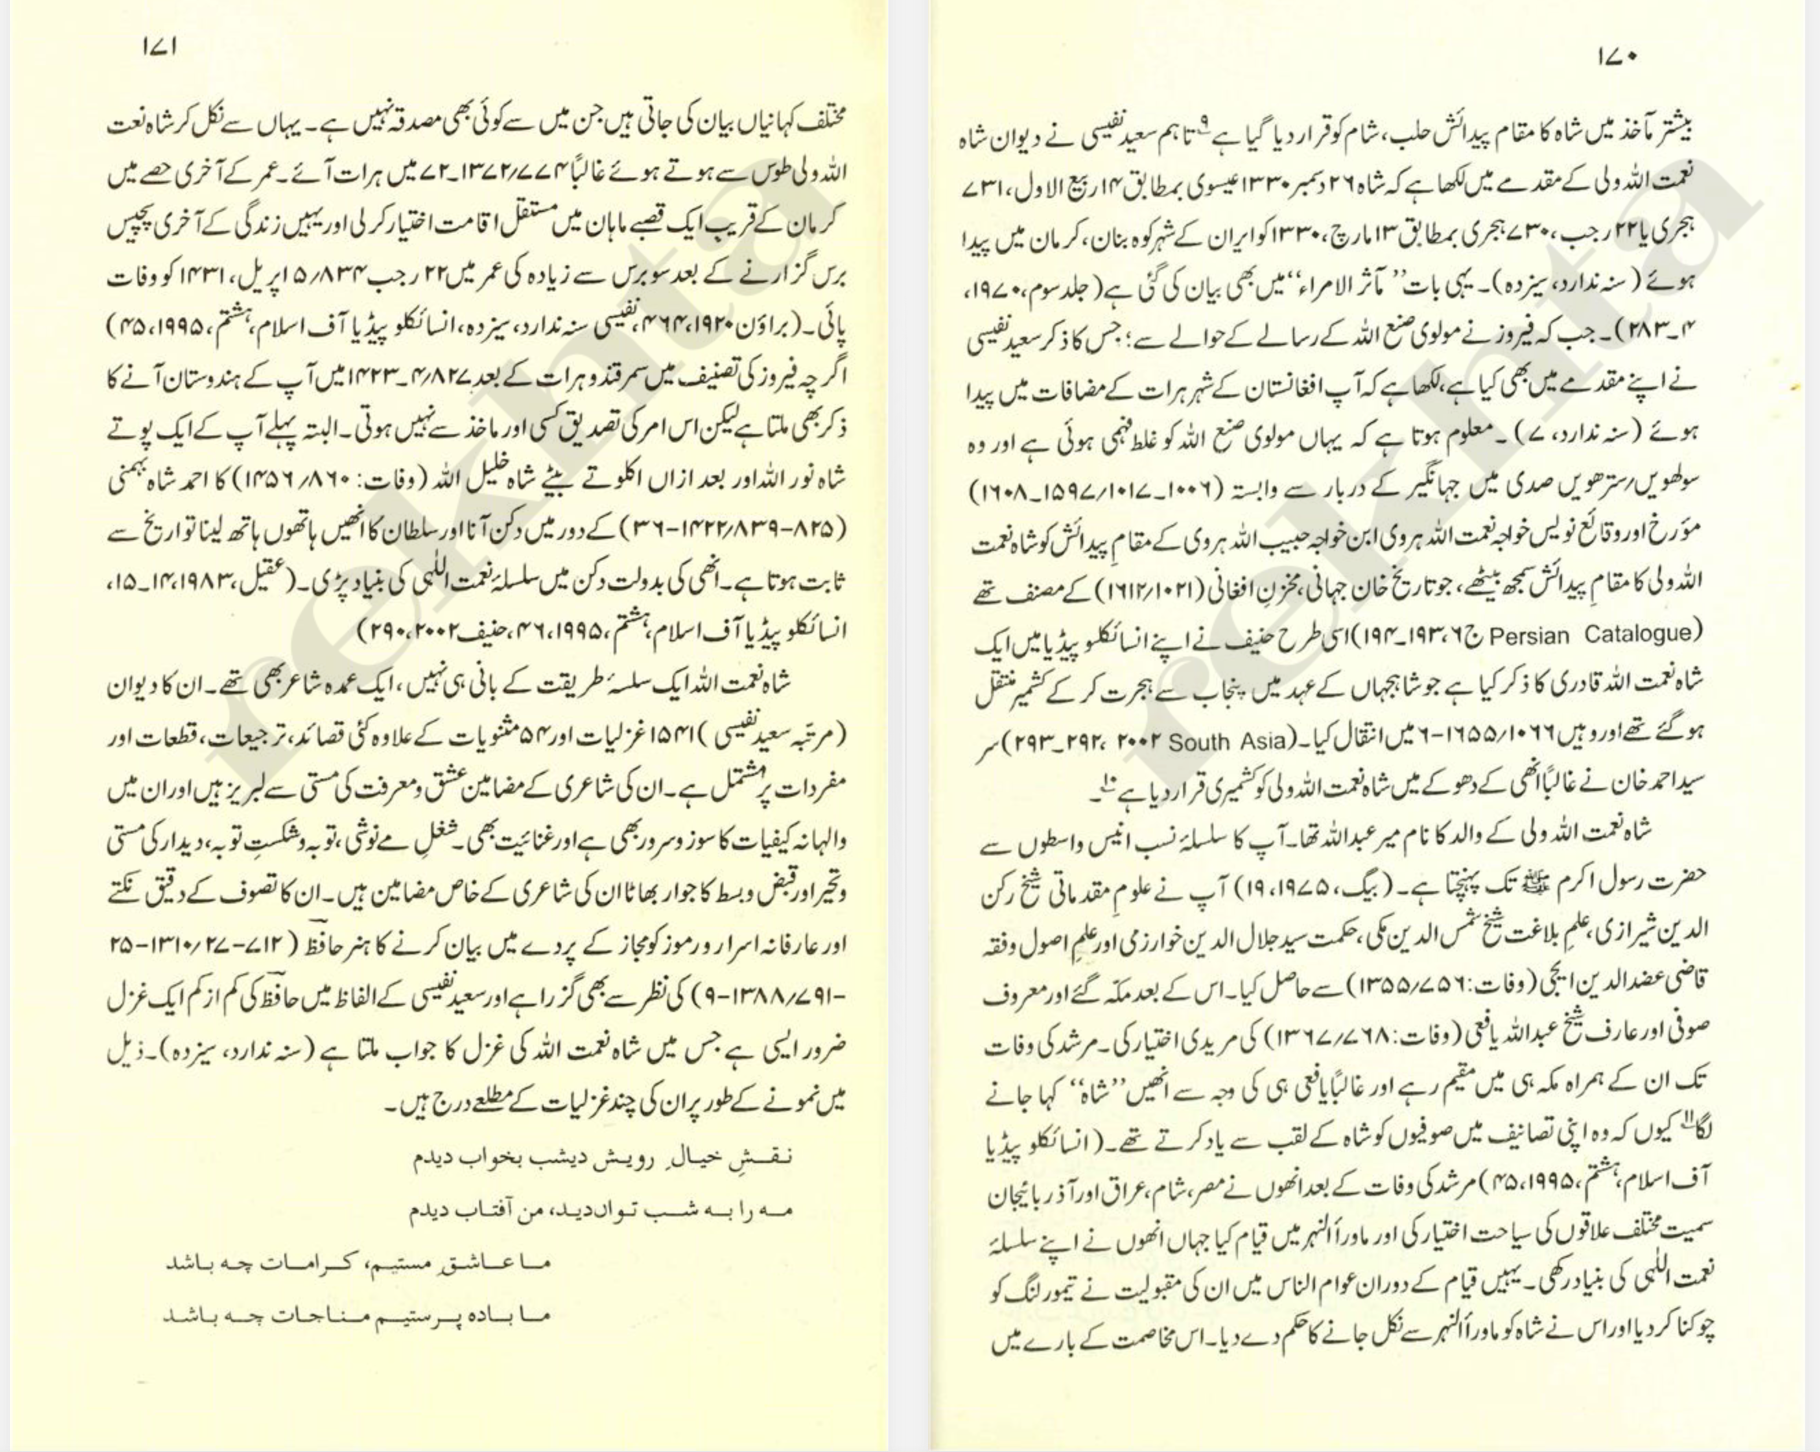 ۱۷۰
بیشتر مآخذ میں شاہ کا مقام پیدائش حلب، شام کو قرار دیا گیا ہے۹ تاہم سعید نفیسی نے دیوان شاہ
نعمت اللہ ولی کے مقدمے میں لکھا ہے کہ شاہ ۲۶ دسمبر ۱۳۳۰ عیسوی بمطابق ۱۴ ربیع الاول، ۷۳۱
ہجری یا ۲۲ رجب، ۷۳۰ ہجری بمطابق ۱۳ مارچ، ۱۳۳۰ کو ایران کے شہر کوہ بنان، کرمان میں پیدا
ہوئے (سنہ ندارد، سیزدہ)۔ یہی بات ”مآثر الامراء“ میں بھی بیان کی گئی ہے (جلد سوم، ۱۹۷۰،
۲۸۳۔۴)۔ جب کہ فیروز نے مولوی صنع اللہ کے رسالے کے حوالے سے؛ جس کا ذکر سعید نفیسی
نے اپنے مقدمے میں بھی کیا ہے، لکھا ہے کہ آپ افغانستان کے شہر ہرات کے مضافات میں پیدا
ہوئے (سنہ ندارد، ۷)۔ معلوم ہوتا ہے کہ یہاں مولوی صنع اللہ کو غلط فہمی ہوئی ہے اور وہ
سولھویں/سترھویں صدی میں جہانگیر کے دربار سے وابستہ (۱۰۰۶۔۱۰۱۷/۱۵۹۷۔۱۶۰۸)
مؤرخ اور وقائع نویس خواجہ نعمت اللہ ہروی ابن خواجہ حبیب اللہ ہروی کے مقامِ پیدائش کو شاہ نعمت
اللہ ولی کا مقامِ پیدائش سمجھ بیٹھے، جو تاریخ خان جہانی، مخزنِ افغانی (۱۰۲۱/۱۶۱۲) کے مصنف تھے
(Persian Catalogue ج۶، ۱۹۳۔۱۹۴) اسی طرح حنیف نے اپنے انسائکلو پیڈیا میں ایک
شاہ نعمت اللہ قادری کا ذکر کیا ہے جو شاہجہاں کے عہد میں پنجاب سے ہجرت کر کے کشمیر منتقل
ہو گئے تھے اور وہیں ۱۰۶۶/۱۶۵۵-۶ میں انتقال کیا۔ (South Asia ۲۰۰۲، ۲۹۲۔۲۹۳) سر
سید احمد خان نے غالباً انھی کے دھوکے میں شاہ نعمت اللہ ولی کو کشمیری قرار دیا ہے۱۰۔
شاہ نعمت اللہ ولی کے والد کا نام میر عبداللہ تھا۔ آپ کا سلسلۂ نسب انیس واسطوں سے
حضرت رسول اکرم ﷺ تک پہنچتا ہے۔ (بیگ، ۱۹۷۵، ۱۹) آپ نے علومِ مقدماتی شیخ رکن
الدین شیرازی، علمِ بلاغت شیخ شمس الدین مکی، حکمت سید جلال الدین خوارزمی اور علمِ اصول و فقہ
قاضی عضدالدین ایجی (وفات: ۷۵۶/۱۳۵۵) سے حاصل کیا۔ اس کے بعد مکّہ گئے اور معروف
صوفی اور عارف شیخ عبداللہ یافعی (وفات: ۷۶۸/۱۳۶۷) کی مریدی اختیار کی۔ مرشد کی وفات
تک ان کے ہمراہ مکہ ہی میں مقیم رہے اور غالباً یافعی ہی کی وجہ سے انھیں ”شاہ“ کہا جانے
لگا۱۱ کیوں کہ وہ اپنی تصانیف میں صوفیوں کو شاہ کے لقب سے یاد کرتے تھے۔ (انسائکلو پیڈیا
آف اسلام، ہشتم، ۱۹۹۵، ۴۵) مرشد کی وفات کے بعد انھوں نے مصر، شام، عراق اور آذر بائیجان
سمیت مختلف علاقوں کی سیاحت اختیار کی اور ماورأالنہر میں قیام کیا جہاں انھوں نے اپنے سلسلۂ
نعمت اللّٰہی کی بنیاد رکھی۔ یہیں قیام کے دوران عوام الناس میں ان کی مقبولیت نے تیمور لنگ کو
چوکنا کر دیا اور اس نے شاہ کو ماورأالنہر سے نکل جانے کا حکم دے دیا۔ اس مخاصمت کے بارے میں
۱۷۱
مختلف کہانیاں بیان کی جاتی ہیں جن میں سے کوئی بھی مصدقہ نہیں ہے۔ یہاں سے نکل کر شاہ نعمت
اللہ ولی طوس سے ہوتے ہوئے غالباً ۷۷۴/۱۳۷۲۔۷۲ میں ہرات آئے۔ عمر کے آخری حصے میں
کرمان کے قریب ایک قصبے ماہان میں مستقل اقامت اختیار کر لی اور یہیں زندگی کے آخری پچیس
برس گزارنے کے بعد سو برس سے زیادہ کی عمر میں ۲۲ رجب ۸۳۴/۵ اپریل، ۱۴۳۱ کو وفات
پائی۔ (براؤن ۱۹۲۰، ۴۶۴، نفیسی سنہ ندارد، سیزدہ، انسائکلو پیڈیا آف اسلام، ہشتم، ۱۹۹۵، ۴۵)
اگرچہ فیروز کی تصنیف میں سمرقند و ہرات کے بعد ۸۲۷/۱۴۲۳۔۴ میں آپ کے ہندوستان آنے کا
ذکر بھی ملتا ہے لیکن اس امر کی تصدیق کسی اور ماخذ سے نہیں ہوتی۔ البتہ پہلے آپ کے ایک پوتے
شاہ نور اللہ اور بعد ازاں اکلوتے بیٹے شاہ خلیل اللہ (وفات: ۸۶۰/۱۴۵۶) کا احمد شاہ بہمنی
(۸۲۵-۸۳۹/۱۴۲۲-۳۶) کے دور میں دکن آنا اور سلطان کا انھیں ہاتھوں ہاتھ لینا تواریخ سے
ثابت ہوتا ہے۔ انھی کی بدولت دکن میں سلسلۂ نعمت اللّٰہی کی بنیاد پڑی۔ (عقیل، ۱۹۸۳، ۱۴۔۱۵،
انسائکلو پیڈیا آف اسلام، ہشتم، ۱۹۹۵، ۴۶، حنیف ۲۰۰۲، ۲۹۰)
شاہ نعمت اللہ ایک سلسلۂ طریقت کے بانی ہی نہیں، ایک عمدہ شاعر بھی تھے۔ ان کا دیوان
(مرتّبہ سعید نفیسی) ۱۵۴۱ غزلیات اور ۵۴ مثنویات کے علاوہ کئی قصائد، ترجیعات، قطعات اور
مفردات پر مشتمل ہے۔ ان کی شاعری کے مضامین عشق و معرفت کی مستی سے لبریز ہیں اور ان میں
والہانہ کیفیات کا سوز و سرور بھی ہے اور غنائیت بھی۔ شغلِ مے نوشی، توبہ و شکستِ توبہ، دیدار کی مستی
و تحیر اور قبض و بسط کا جوار بھاٹا ان کی شاعری کے خاص مضامین ہیں۔ ان کا تصوف کے دقیق نکتے
اور عارفانہ اسرار و رموز کو مجاز کے پردے میں بیان کرنے کا ہنر حافظ (۷۱۲-۲۷/۱۳۱۰-۲۵
-۷۹۱/۱۳۸۸-۹) کی نظر سے بھی گزرا ہے اور سعید نفیسی کے الفاظ میں حافظ کی کم از کم ایک غزل
ضرور ایسی ہے جس میں شاہ نعمت اللہ کی غزل کا جواب ملتا ہے (سنہ ندارد، سیزدہ)۔ ذیل
میں نمونے کے طور پر ان کی چند غزلیات کے مطلعے درج ہیں۔
نقشِ خیالِ رویش دیشب بخواب دیدم
مہ را بہ شب تواں دید، من آفتاب دیدم
ما عاشقِ مستیم، کرامات چہ باشد
ما بادہ پرستیم مناجات چہ باشد
rekhta
rekhta